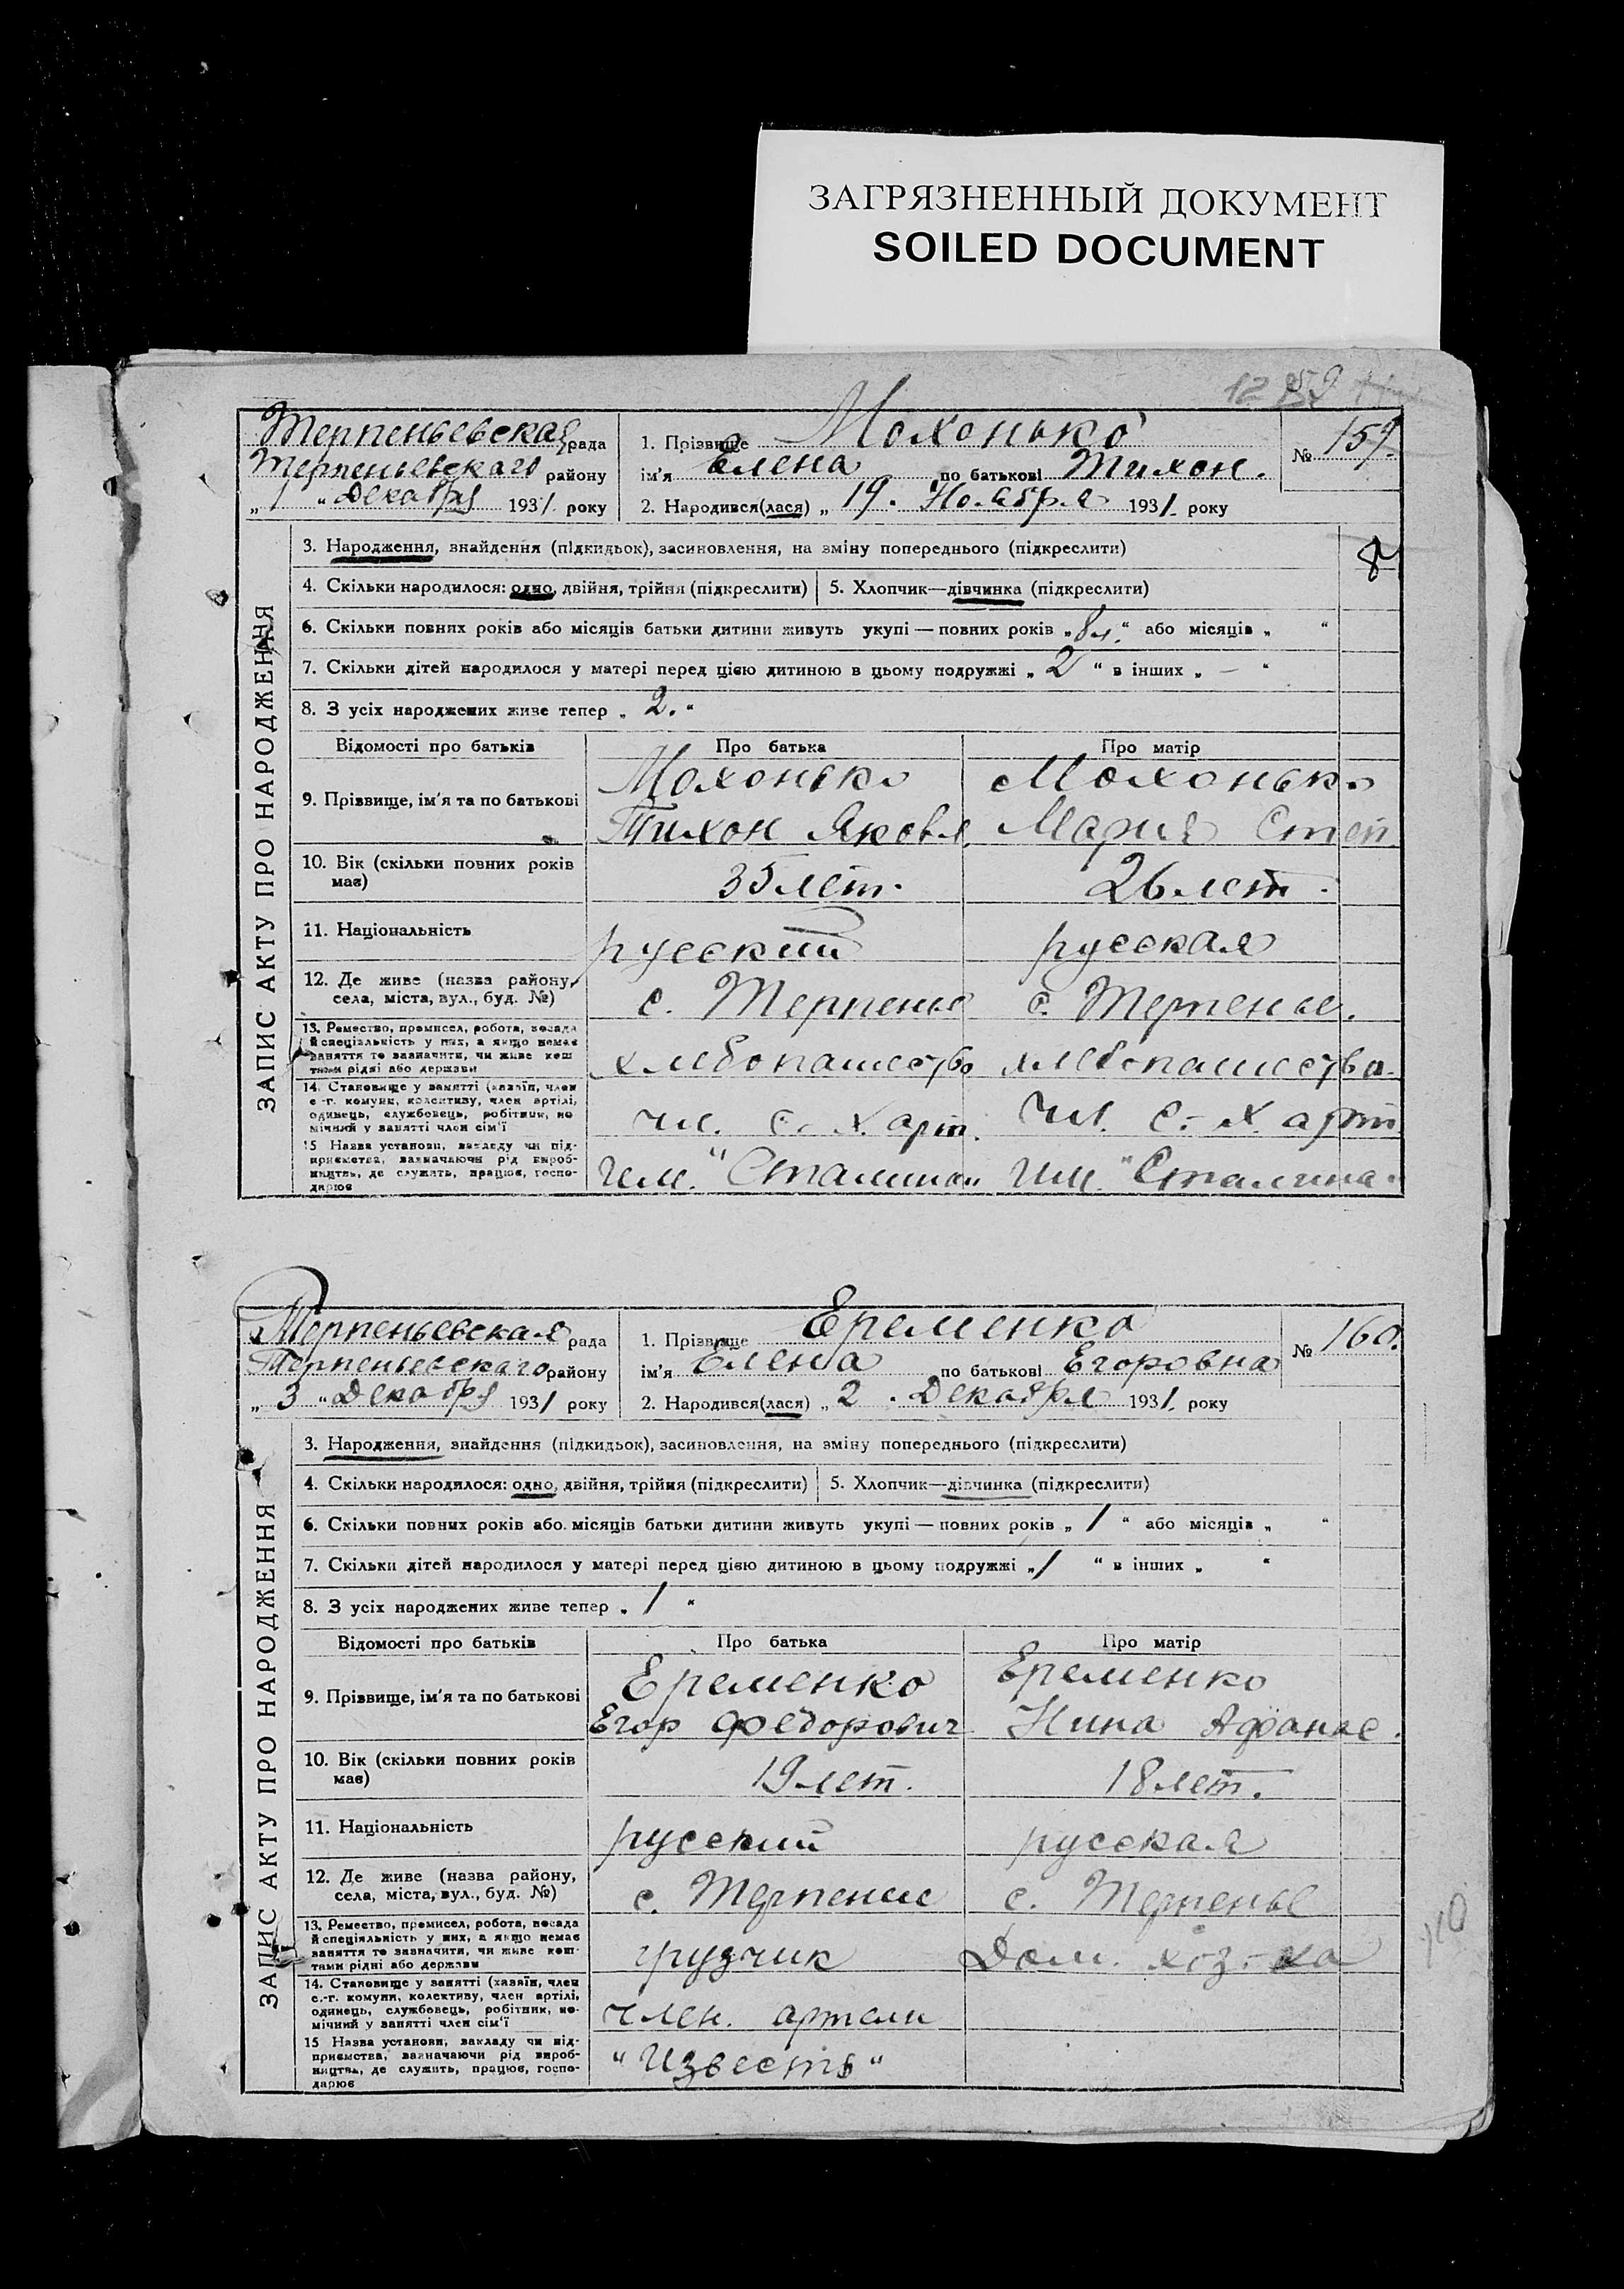 ЗАГРЯЗНЕННЫЙ ДОКУМЕНТ
SOILED DOCUMENT
12 59
Терпеньевская рада
Терпеньевскаго району
„ 1 “ Декабря 1931. року
1. Прізвище Мохонько
ім'я Елена по батькові Тихон.
2. Народився(лася) „ 19. Ноября 1931. року
№ 159.
ЗАПИС АКТУ ПРО НАРОДЖЕННЯ
3. Народження, знайдення (підкидьок), засиновлення, на зміну попереднього (підкреслити)
8
4. Скільки народилося: одно, двійня, трійня (підкреслити) 5. Хлопчик—дівчинка (підкреслити)
6. Скільки повних років або місяців батьки дитини живуть укупі — повних років „ 8л. “ або місяців „ “
7. Скільки дітей народилося у матері перед цією дитиною в цьому подружжі „ 2 “ в інших „ — “
8. З усіх народжених живе тепер „ 2. “
Відомості про батьків Про батька Про матір
9. Прізвище, ім'я та по батькові
Мохонько Мохонько
Тихон Яковл. Мария Степ.
10. Вік (скільки повних років
має)
35 лет. 26 лет.
11. Національність
русский русская
12. Де живе (назва району,
села, міста, вул., буд. №)
с. Терпенье с. Терпенье.
13. Ремество, промисел, робота, посада
й спеціяльність у них, а якщо немає
заняття то зазначити, чи живе кош
тами рідні або держави
хлебопашество хлебопашества.
14. Становище у занятті (хазяїн, член
с.-г. комуни, колективу, член артілі,
одинець, службовець, робітник, по
мічний у занятті член сім'ї
чл. с. х. арт. чл. с. х. арт
15 Назва установи, закладу чи під-
приємства, зазначаючи рід вироб-
ництва, де служить, працює, госпо-
дарює
Им. "Сталина" Им. "Сталина"
Терпеньевская рада
Терпеньевскаго району
„ 3 “ Декабря 1931 року
1. Прізвище Еременко
ім'я Елена по батькові Егоровна
2. Народився(лася) „ 2. Декабря 1931. року
№ 160.
ЗАПИС АКТУ ПРО НАРОДЖЕННЯ
3. Народження, знайдення (підкидьок), засиновлення, на зміну попереднього (підкреслити)
4. Скільки народилося: одно, двійня, трійня (підкреслити) 5. Хлопчик—дівчинка (підкреслити)
6. Скільки повних років або місяців батьки дитини живуть укупі — повних років „ 1 “ або місяців „ “
7. Скільки дітей народилося у матері перед цією дитиною в цьому подружжі „ 1 “ в інших „ “
8. З усіх народжених живе тепер „ 1 “
Відомості про батьків Про батька Про матір
9. Прізвище, ім'я та по батькові
Еременко Еременко
Егор Федорович Нина Афанас.
10. Вік (скільки повних років
має)
19 лет. 18 лет.
11. Національність
русский русская
12. Де живе (назва району,
села, міста, вул., буд. №)
с. Терпение с. Терпенье
13. Ремество, промисел, робота, посада
й спеціяльність у них, а якщо немає
заняття то зазначити, чи живе кош-
тами рідні або держави
грузчик Дом. хоз-ка
14. Становище у занятті (хазяїн, член
с.-г. комуни, колективу, член артілі,
одинець, службовець, робітник, по-
мічний у занятті член сім'ї
член. артели
15 Назва установи, закладу чи під-
приємства, зазначаючи рід вироб-
ництва, де служить, працює, госпо-
дарює
"Известь"